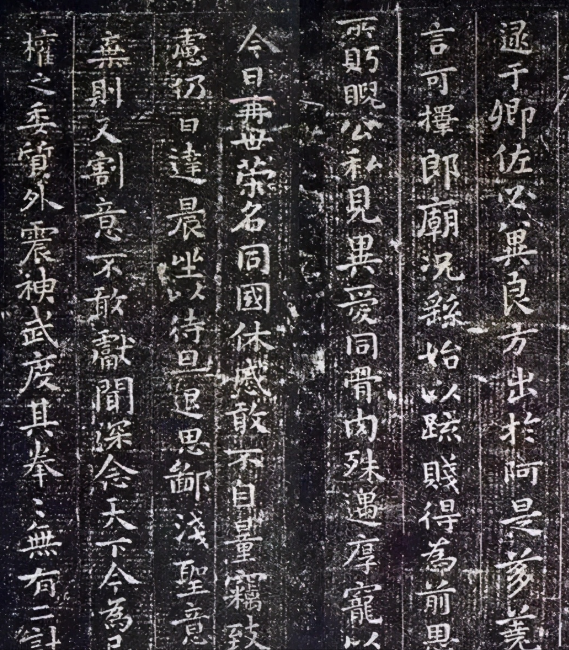 逮于卿佐必兾良方出於阿是芻蕘
言可擇郎廟況繇始以疏賤得為前恩
所眄睨公私見異愛同骨肉殊遇厚寵以
今日再世榮名同國休慼敢不自量竊致
慮仍日達晨坐以待旦退思鄙淺聖意
棄則又割意不敢獻聞深念天下今為已
權之委質外震神武度其拳〻無有二計